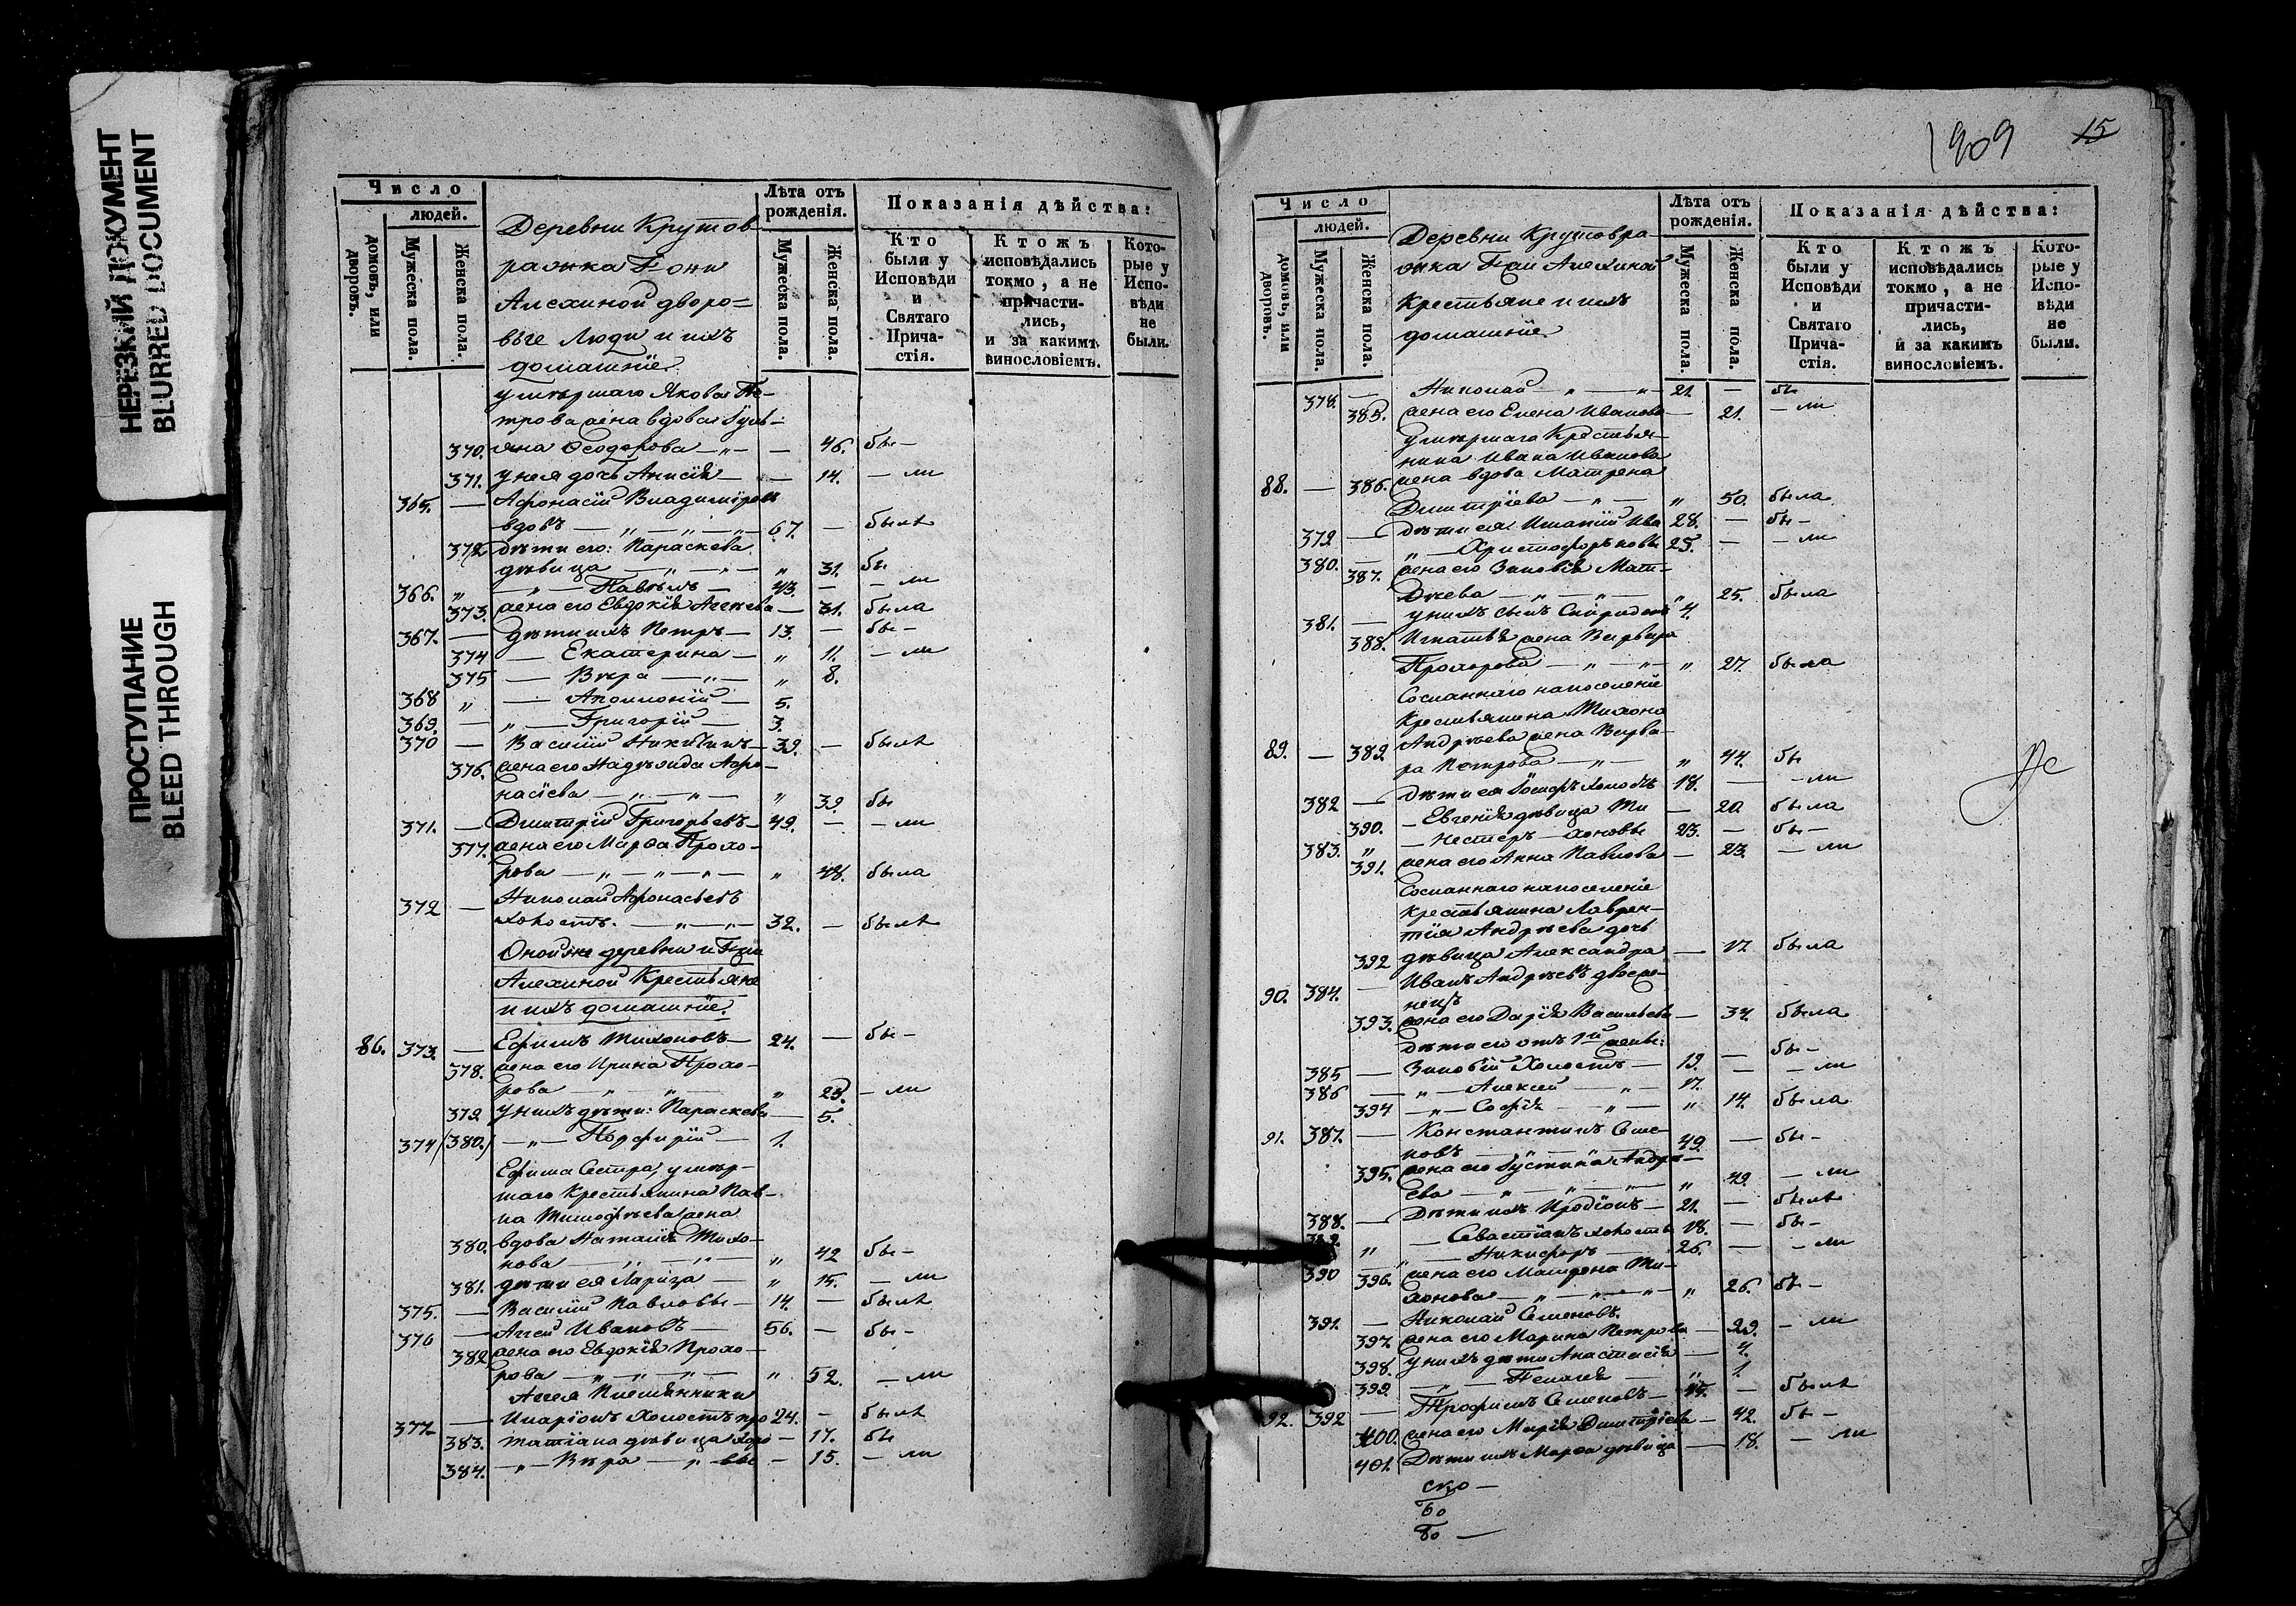 НЕРЕЗКИЙ ДОКУМЕНТ
BLURRED DOCUMENT
ПРОСТУПАНИЕ
BLEED THROUGH
Число
людей.
домовъ, или дворовъ.
Мужеска пола.
Женска пола.
Деревни Крутов
ражка Г-жи
Алехиной дворо=
вые Люди и ихъ
домашніе.
Лѣта отъ рожденія.
Мужеска пола.
Женска пола.
Показанія дѣйства:
Кто были у Исповѣди и Святаго Прича-стія.
Ктожъ исповѣдались токмо, а не причасти-лись, и за какимъ винословіемъ.
Кото-рые у Испо-вѣди не были.
умершаго Якова Пе-
трова жена вдова Улья-
370. яна Ѳеодорова — 46. бы-
371. у нея дочь Анисія — 14. — ли
365. — Афонасій Владиміровъ
вдовъ — 67. — былъ
372 дѣти его: Параскева
дѣвица — " 31. бы
366. " — Павелъ — 43. — — ли
373. жена его Евдокія Алекѣева — 31. была
367. — дѣти ихъ Петръ — 13. — бы-
374 — Екатерина — " 11. — ли
375 — Вѣра — " 8.
368 " — Аполлоній — 5.
369. — " — Григорій — 3.
370 — Василій Никитинъ — 39. — былъ
376. жена его Надежда Афо-
насіева — " 39 бы
371. — Дмитрій Григорьевъ — 49. — — ли
377. жена его Марѳа Прохо-
рова — " 48. была
372 — Николай Афонасьевъ
холостъ. — 32. — былъ
Оной же деревни и Г-жи
Алехиной Крестьяне
и ихъ домашніе.
86. 373. — Ефимъ Тихоновъ — 24. — бы-
378. жена его Ирина Прохо-
рова — " 23. — ли
379 у нихъ дѣти: Параскева — 5.
374 (380.) — " — Порфирій — 1.
Ефима Сестра, умер-
шаго Крестьянина Пав-
ла Тимофѣева жена
380. вдова Наталія Тихо-
нова — " 42 бы-
381. дѣти ея Лариса — " 15. — ли
375. — Василій Павловы — 14. — былъ
376 — Аггей Ивановъ — 56. — бы-
382 жена его Евдокія Прохо-
рова — " 52. — ли
Аггея Племянники
377. — Иларіонъ Холостъ про 24. — былъ
383. Татіана дѣвица хоро — 17. бы
384. — " — Вѣра — " вы — 15. — ли
1909 15
Число
людей.
домовъ, или дворовъ.
Мужеска пола.
Женска пола.
Деревни Крутовра-
жка Г-жи Алехиной
Крестьяне и ихъ
домашніе
Лѣта отъ рожденія.
Мужеска пола.
Женска пола.
Показанія дѣйства:
Кто были у Исповѣди и Святаго Прича-стія.
Ктожъ исповѣдались токмо, а не причасти-лись, и за какимъ винословіемъ.
Кото-рые у Испо-вѣди не были.
378. — Николай — " — " — 21. — бы
385. жена его Елена Иванова — 21. — ли
умершаго Крестья-
нина Ивана Иванова
88. — 386. жена вдова Матрена
Дмитріева — " 50. была
379 — дѣти ея Игнатій Ива 28. — бы-
380. — " — Христофоръ новы 25. — — ли
387. жена его Зиновія Мат-
вѣева — " 25. была
381. — у нихъ сынъ Спиридонъ 4.
388. Игнатья жена Варвара
Прохорова — " 27. была
Сосланнаго на поселеніе
Крестьянина Тихона
Андрѣева жена Варва-
89. — 389 ра Петрова — " 44. бы
382 — дѣти ея Іосифъ холостъ 18. — — ли
390. — Евгенія дѣвица Ти — 20. была
383. " — Нестеръ — хоновы 23. — бы-
391. жена его Анна Павлова — 23. — ли
Сосланнаго на поселеніе
крестьянина Лаврен-
тія Андрѣева дочь
392 дѣвица Александра — 17. была
90. 384. — Иванъ Андрѣевъ двоеже-
нецъ
393. жена его Дарія Васильева — 34. была
Дѣти его отъ 1-й жены:
385 — Зиновій Холостъ — 19. — бы-
386 — " — Алексій — " 17. — — ли
394 — " — Софія — " 14. была
91. 387. — Константинъ Семе-
новъ — 49. — бы-
395. жена его Іустина Андрѣ-
ева — " 49. — ли
388. — Дѣти ихъ Иродіонъ — 21. — былъ
389. " — Севастіанъ холостъ 18. — бы-
390 — Никифоръ — 26. — — ли
396. жена его Матрена Ти-
хонова — " 26. бы-
391. — Николай Семеновъ.
397. жена его Марина Петрова — 29. — ли
398. у нихъ дѣти Анастасія — 4.
399. — " — Пелагія — " 1.
92. 392 — Трофимъ Семеновъ — 45. — былъ
400. жена его Марія Дмитріева — 42. бы-
401. Дѣти ихъ Марѳа дѣвица — 18. — ли